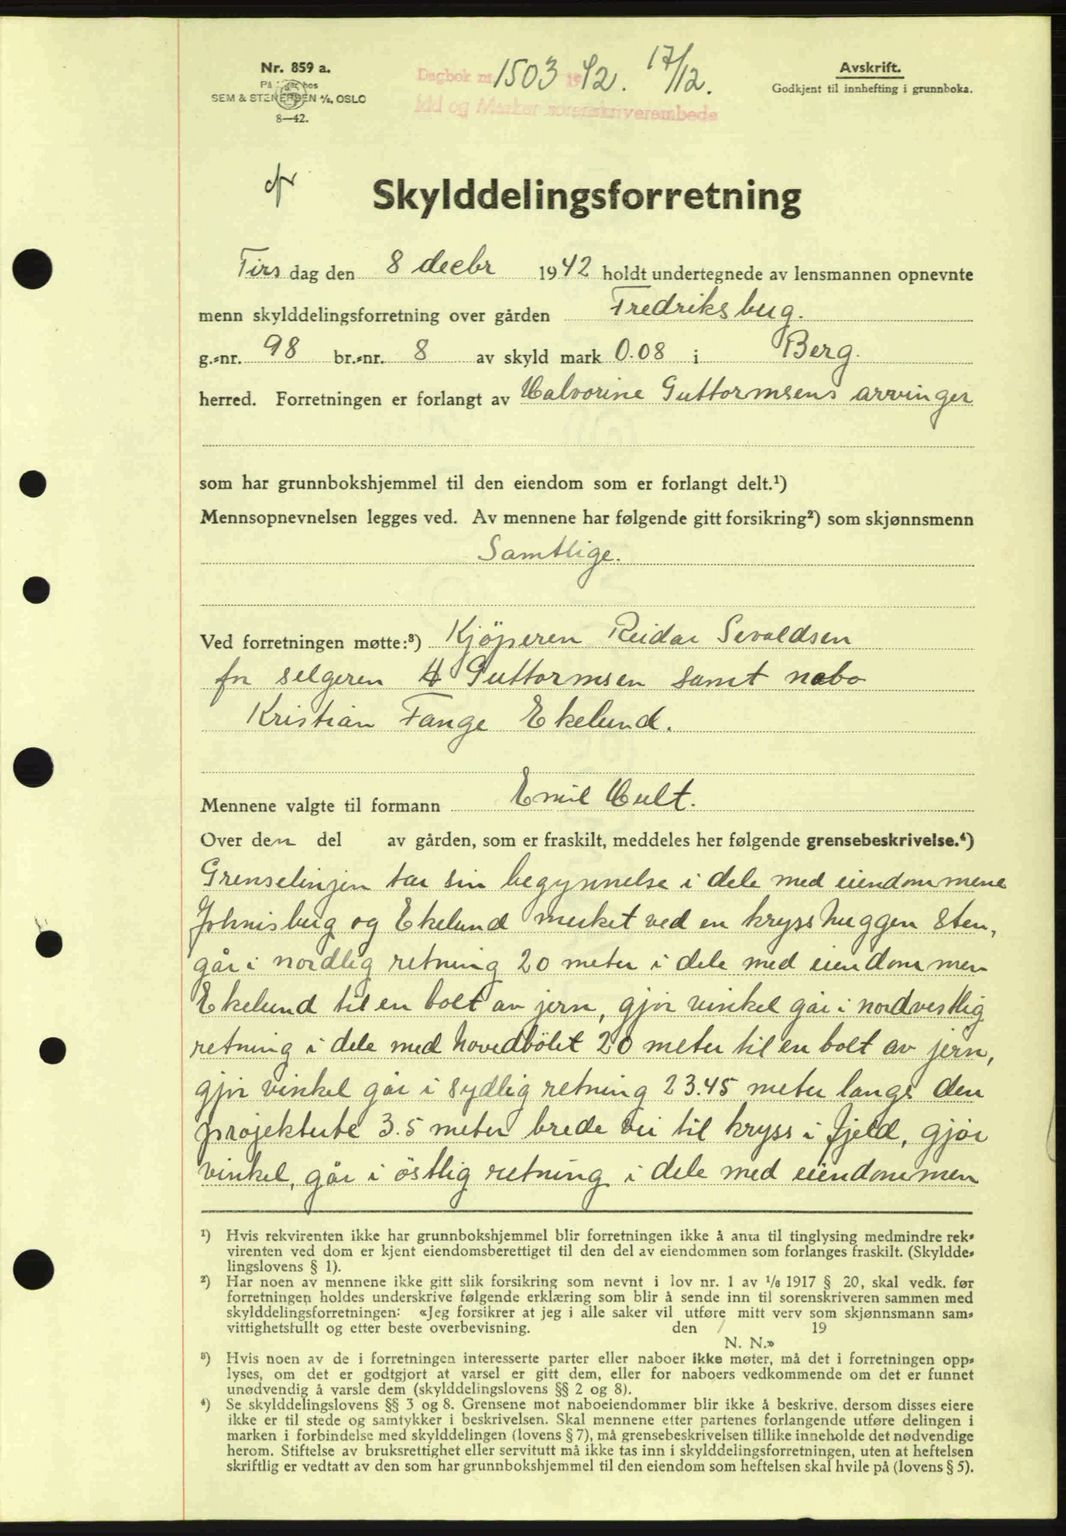 Nr. 859 a.
På hos
SEM & STENERSEN A/S, OSLO
8—42.
Dagbok nr 1503 1942. 17/12.
Idd og Marker sorenskriverembede
Avskrift.
Godkjent til innhefting i grunnboka.
Skylddelingsforretning
Tirs dag den 8 decbr 1942 holdt undertegnede av lensmannen opnevnte
menn skylddelingsforretning over gården Fredriksberg.
g.-nr. 98 br.-nr. 8 av skyld mark 0.08 i Berg.
herred. Forretningen er forlangt av Halvorine Guttormsens arvinger
som har grunnbokshjemmel til den eiendom som er forlangt delt.¹)
Mennsopnevnelsen legges ved. Av mennene har følgende gitt forsikring²) som skjønnsmenn
Samtlige.
Ved forretningen møtte:³) Kjöperen Reidar Sevaldsen
for selgeren H Guttormsen samt nabo
Kristian Fange Ekelund.
Mennene valgte til formann Emil Hult.
Over den del av gården, som er fraskilt, meddeles her følgende grensebeskrivelse.⁴)
Grenselinjen tar sin begynnelse i dele med eiendommene
Johnisberg og Ekelund merket ved en kryss huggen sten,
går i nordlig retning 20 meter i dele med eiendommen
Ekelund til en bolt av jern, gjør vinkel går i nordvestlig
retning i dele med hovedbölet 20 meter til en bolt av jern,
gjör vinkel går i sydlig retning 23.45 meter langs den
projekterte 3.5 meter brede vei til kryss i fjeld, gjör
vinkel, går i östlig retning i dele med eiendommen
¹) Hvis rekvirenten ikke har grunnbokshjemmel blir forretningen ikke å anta til tinglysing medmindre rek-
virenten ved dom er kjent eiendomsberettiget til den del av eiendommen som forlanges fraskilt. (Skyldde-
lingslovens § 1).
²) Har noen av mennene ikke gitt slik forsikring som nevnt i lov nr. 1 av 1/6 1917 § 20, skal vedk. før
forretningen holdes underskrive følgende erklæring som blir å sende inn til sorenskriveren sammen med
skylddelingsforretningen: «Jeg forsikrer at jeg i alle saker vil utføre mitt verv som skjønnsmann sam-
vittighetsfullt og etter beste overbevisning. den / 19
N. N.»
³) Hvis noen av de i forretningen interesserte parter eller naboer ikke møter, må det i forretningen opp-
lyses, om det er godtgjort at varsel er gitt dem, eller for naboers vedkommende om det er funnet
unødvendig å varsle dem (skylddelingslovens §§ 2 og 8).
⁴) Se skylddelingslovens §§ 3 og 8. Grensene mot naboeiendommer blir ikke å beskrive, dersom disses eiere
ikke er til stede og samtykker i beskrivelsen. Skal mennene etter partenes forlangende utføre delingen i
marken i forbindelse med skylddelingen (lovens § 7), må grensebeskrivelsen tillike inneholde det nødvendige
herom. Stiftelse av bruksrettighet eller servitutt må ikke tas inn i skylddelingsforretningen, uten at heftelsen
skriftlig er vedtatt av den som har grunnbokshjemmel til den eiendom som heftelsen skal hvile på (lovens § 5).